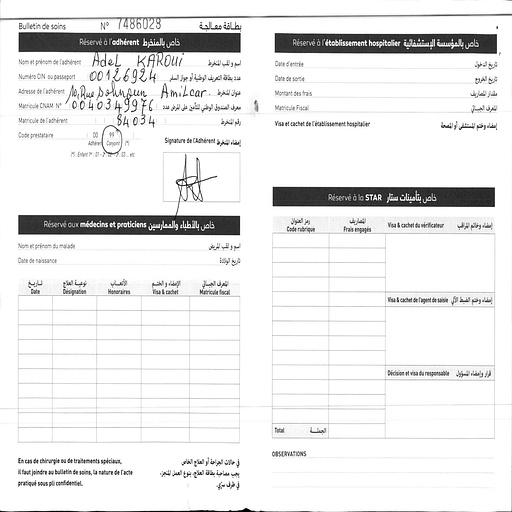 Bulletin de soins N° 7486028 بطاقة معالجة
Réservé à l'adhérent خاص بالمنخرط
Nom et prénom de l'adhérent Adel KAROUI اسم و لقب المنخرط
Numéro CIN ou passeport 00126924 عدد بطاقة التعريف الوطنية أو جواز السفر
Adresse de l'adhérent Rue Amilcar عنوان المنخرط
Matricule CNAM N° 0040349976 معرف الصندوق الوطني للتأمين على المرض عدد
Matricule de l'adhérent 84034 رقم المنخرط
Code prestataire 00 99 (*)
Adhérent Conjoint (*)
(*). Enfant 1er : 01 - 2 : 02 - 3 : 03 ... etc
Signature de l'Adhérent إمضاء المنخرط
Réservé aux médecins et praticiens خاص بالأطباء والممارسين
Nom et prénom du malade اسم و لقب المريض
Date de naissance تاريخ الولادة
تاريخ نوعية العلاج الأتعاب الإمضاء و الختم المعرف الجبائي
Date Désignation Honoraires Visa & cachet Matricule fiscal
En cas de chirurgie ou de traitements spéciaux,
il faut joindre au bulletin de soins, la nature de l'acte
pratiqué sous pli confidentiel.
في حالات الجراحة أو العلاج الخاص
يجب مصاحبة بطاقة العلاج، بنوع العمل المنجز،
في ظرف سري.
Réservé à l'établissement hospitalier خاص بالمؤسسة الإستشفائية
Date d'entrée تاريخ الدخول
Date de sortie تاريخ الخروج
Montant des frais مقدار المصاريف
Matricule Fiscal المعرف الجبائي
Visa et cachet de l'établissement hospitalier إمضاء وختم المستشفى أو المصحة
Réservé à la STAR خاص بتأمينات ستار
رمز العنوان المصاريف
Code rubrique Frais engagés
Visa & cachet du vérificateur إمضاء وخاتم المراقب
Visa & cachet de l'agent de saisie إمضاء وختم الضبط الآلي
Décision et visa du responsable قرار وإمضاء المسؤول
Total الجملة
OBSERVATIONS